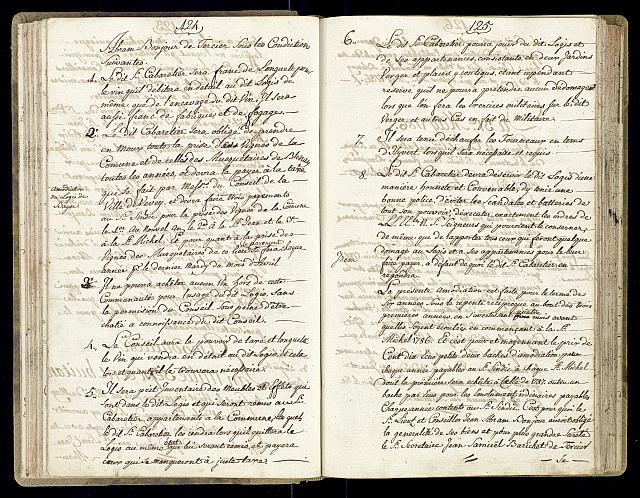 124
Abram Bonjour de Tercier sous les Conditions
suivantes.
1. Le dit Sr. Cabaretier sera franc de Longuelt pour
le vin qu'il débitera en détail au dit Logis de
même que de l'encavage du dit Vin, Il sera
aussi franc de fabriques et de fogages.
2. Le Dit Cabaretier sera obligé de prendre
en Mout toute la prise des Vignes de la
Comune et de celles des Musquetaires de
toutes les années, et devra la payer à la taxe
que se fait par Mssrs. du Conseil de la
Ville de Vevey, et devra faire trois payements
au Sr. Sindic pour la prise des Vignes de la Comune
le 1er. au Nouvel an, le 2d. à la St. Jean et le 3e.
à la St. Michel, et pour quant à la prise des
Vignes des Musquetaires de ce lieu fera chaque
année le dernier Mardy du mois d'Avril
Amodiation
du Logis du
3. Il ne pourra acheter aucun Vin hors de cette
Communauté pour l'usage du dit Logis, sans
la permission du Conseil sous peine d'être
chatié a connoissance du dit Conseil.
4. Le Conseil aura le pouvoir de taxé et longuelté
le Vin que vendra en détail au dit Logis, si cela
et quant il le trouvera nécessaire.
5. Il sera prit Inventaire des Meubles et Effets qui
sont dans le dit Logis et qui seront remis au Sr.
Cabaretier appartenants à la Commune, les quels
le dit Sr. Cabaretier les rendra lors qu'il quittera le
Logis au même état qu'ils lui seront remis, et payera
ceux qui se manqueront à juste taxe
125
6. Le dit Sr. Cabaretier pourra jouir du dit Logis et
de ses appartenances, consistants en deux Jardins
Verger et places y contigus, étant cependant
reservé qu'il ne pourra prétendre aucun Dédomagement
lors que l'on fera les exercices militaires sur le dit
Verger et autres Cas en fait de Militaire.
7. Il sera tenu d'échaufer les Fourneaux en tems
d'hyver lors qu'il sera nécessaire et requis
8. Le dit Sr. Cabaretier devra desservir le dit Logis d'une
manière honnete et Convenable, d'y tenir une
bonne police, d'éviter les scandales et batteries de
tout son pouvoir, d'executer exactement les ordres de
L.L. E.E. Nos Seigneurs qui pourroient le concerner
de même que de raporter tous ceux qui feront quelque
domage au Logis et a ses appartenances pour le leur
faire payer, à défaut de quoi le dit Sr. Cabaretier en
répondra.
La présente Amodiation est faite pour le terme de
Six années sous le repenti réciproque au bout des trois
premières années, en s'avertissant mois avant
quelles soyent écoulées en commençant à la St.
Michel 1786. Et c'est pour et moyennant le prix de
Cent dix sept petits deux baches d'amodiation pour
chaque année payables au Sr. Sindic à chaque St. Michel
dont la première sera echute à celle de 1787. outre un
bache par sous pour les émoluments ordinaires payables
Chaque année contents au Sr. Sindic. C'est pour quoi le
Sr. Lieut. et Conseiller Jean Abram Bonjour aurat obligé
la généralité de ses biens et pour plus grande sureté
le Sr. Secretaire Jean Samuel de Tercier
se